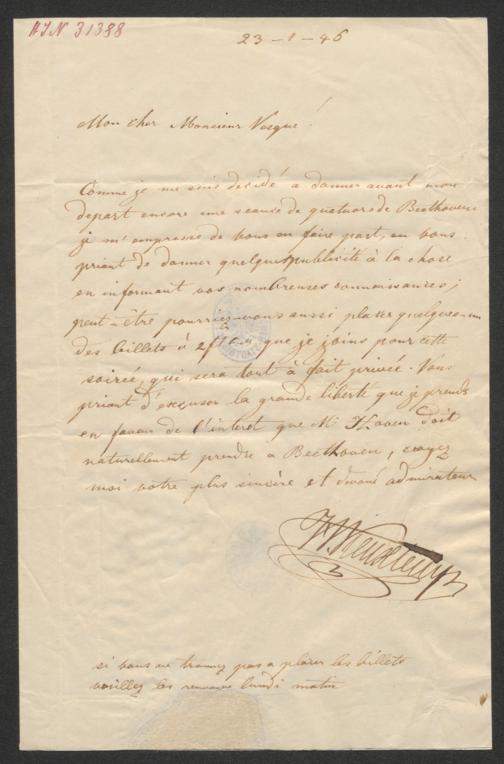 AJN 31388
23-1-46
Mon cher Monsieur Vesque!
Comme je me suis decidé a donner avant mon
depart encore une seance de quatuors de Beethoven
je m'empresse de vous en faire part, en vous
priant de donner quelque publicité à la chose
en informant vos nombreuses connaissances;
peut-être pourriez-vous aussi placer quelques un
des billets à 2f que je joins pour cette
soirée, qui sera tout à fait privée. Vous
priant d'excuser la grande liberté que je prends
en faveur de l'interet que Mr Hoven doit
naturellement prendre a Beethoven, croyez
moi votre plus sincère et devoué admirateur
si vous ne trouvez pas a placer les billets
veuillez les renvoyer lundi matin